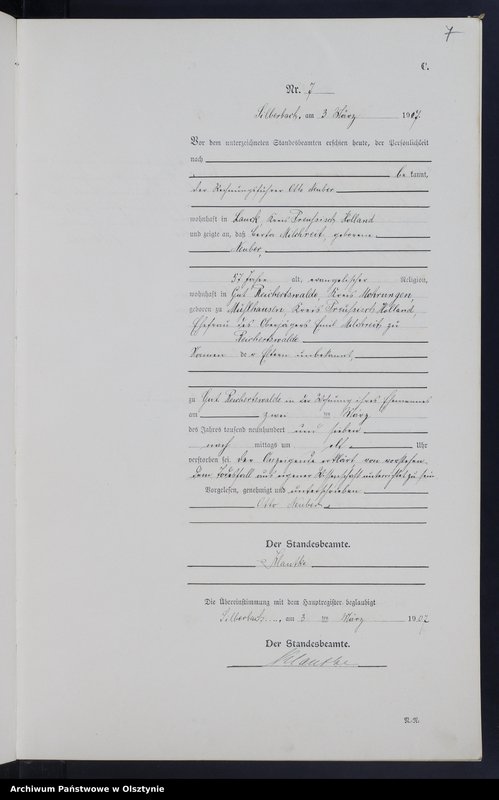 7
C.
Nr. 7
Silberbach, am 3 März 1907.
Vor dem unterzeichneten Standesbeamten erschien heute, der Persönlichkeit
nach
be kannt,
der Rechnungsführer Otto Neuber
wohnhaft in Lauck, Kreis Preußisch Holland
und zeigte an, daß Berta Melchreit, geborene
Neuber,
57 Jahre alt, evangelischer Religion,
wohnhaft in Gut Reichertswalde, Kreis Mohrungen,
geboren zu Mühlhausen, Kreis Preußisch Holland,
Ehefrau des Oberjägers Melchreit, zu
Reichertswalde
Namen der Eltern unbekannt,
zu Gut Reichertswalde in der Wohnung ihres Ehemannes
am zwei ten März
des Jahres tausend neunhundert und sieben
nach mittags um elf Uhr
verstorben sei. Der Anzeigende erklärt von vorstehen-
dem Todesfall aus eigener Wissenschaft unterrichtet zu sein
Vorgelesen, genehmigt und unterschrieben
Otto Neuber
Der Standesbeamte.
Klautke
Die Übereinstimmung mit dem Hauptregister beglaubigt
Silberbach, am 3 ten März 1907
Der Standesbeamte.
Klautke
N.-N.
Archiwum Państwowe w Olsztynie